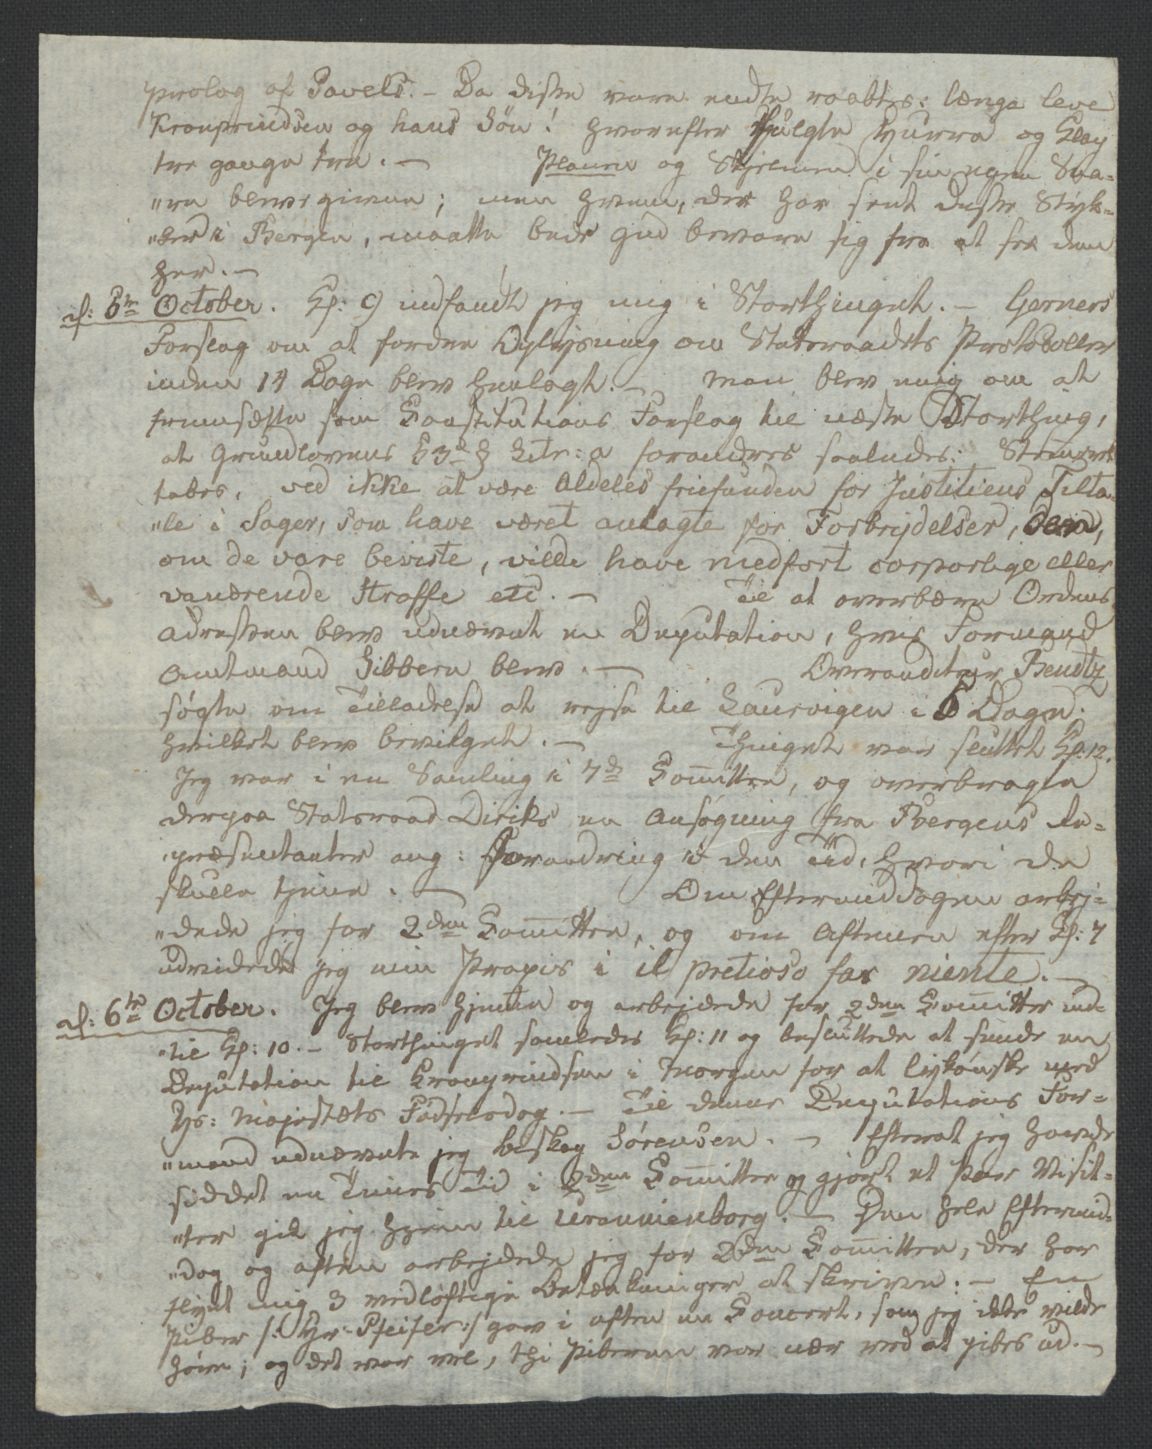 prolog af Pavels. – Da disse vare endte raabtes: længe leve
Kronprindsen og hans Søn! hvorefter fulgte Hurra og Klap
tre gange tre. – Planen og Stjernen i sin egen Sva-
"re blev givne; men hvem, der har seet disse Styk-
"ker i Bergen, maatte bede gud bevare sig fra at see dem
her. –
d: 5te October. Kl: 9 indfandt jeg mig i Storthinget. – Garners
Forslag om at fordre Oplysning om Statsraadets Protokoller
inden 14 Dage blev henlagt. – Man blev enig om at
fremsætte som Constitutions Forslag til næste Storthing,
at Grundlovens 53d § Litr: a forandres saaledes: Stemmeret
tabes, ved ikke at være aldeles friefunden for Justitiens Tilta-
"le i Sager, som have været anlagte for Forbrydelser, der,
om de vare beviste, vilde have medført corporlige eller
vanærende Straffe etc. – Til at overbære Ordens
Adressen blev udnævnt en Deputation, hvis Formand
Amtmand Sibbern blev. – Overauditeur Bendtz
søgte om Tilladelse at rejse til Laurvigen i 6 Dage.
hvilket blev bevilget. – Thinget var sluttet Kl. 12.
Jeg var i en Samling i 7de Committee, og overbragte
derpaa Statsraad Diriks en Ansøgning fra Bergens Re-
"præsentanter ang: Forandring i den Tid, hvori de
skulle tjene. – Om Eftermiddagen arbej-
"dede jeg for 2den Committee, og om Aftenen efter Kl: 7
udvidede jeg min Praxis i il pretioso far niente. –
d: 6te October. Jeg blev hjemme og arbejdede for 2den Committee ind-
"til Kl: 10. – Storthinget samledes Kl: 11 og besluttede at sende en
Deputation til Kronprindsen i Morgen for at lykønske med
Hs: Majestæts Fødselsdag. – Til denne Deputations For-
"mand udnævnte jeg beskog Sörensen. – Efterat jeg havde
siddet en Times Tid i 2den Committee og gjort et Par Visit-
"ter gik jeg hjem til Uranienborg. – Den hele Eftermid-
"dag og aften arbejdede jeg for 2den Committee, der har
flyet mig 3 vedløftige Betænkninger at skrive. – En
Piber /: Hr. Pfeifer :/ gav i aften en Concert, som jeg ikke vilde
høre; og det var vel, thi Piberen var nær ved at pibes ud. –